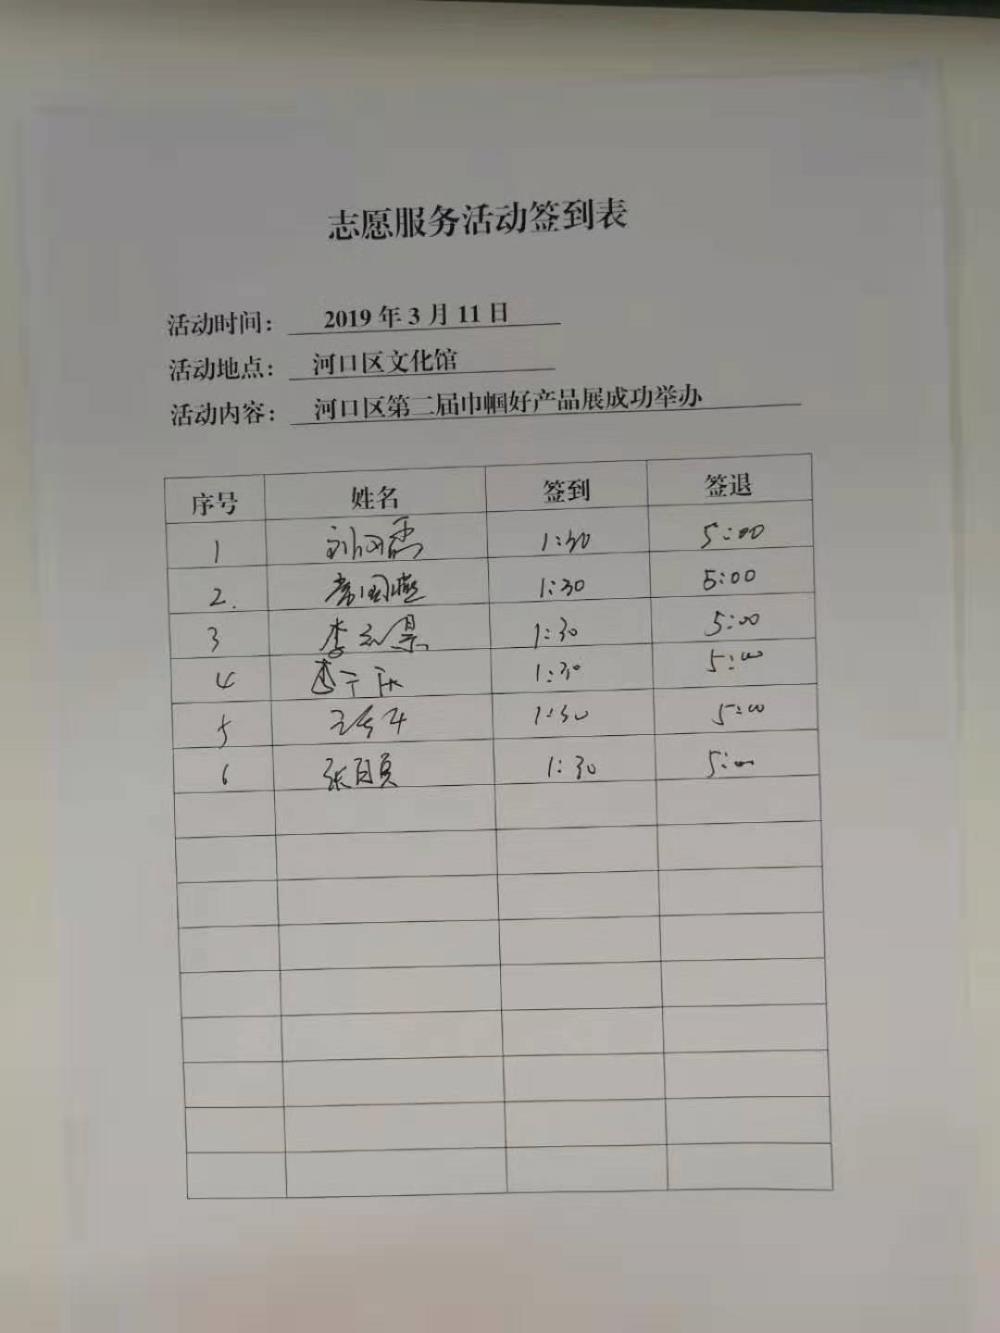 志愿服务活动签到表
活动时间： 2019 年 3 月 11 日
活动地点： 河口区文化馆
活动内容： 河口区第二届巾帼好产品展成功举办
序号 姓名 签到 签退
1 1:30 5:00
2. 常国燕 1:30 5:00
3 1:30 5:00
4 1:30 5:00
5 1:30 5:00
6 1:30 5:00